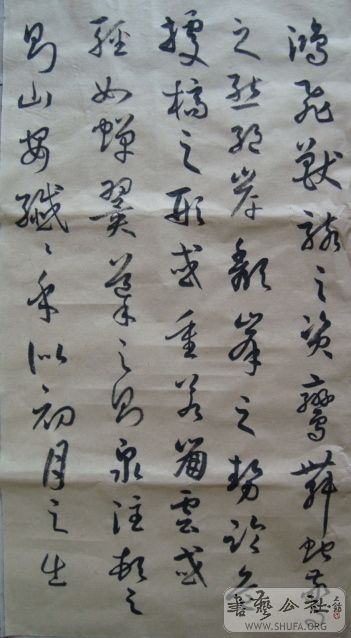 鴻飛獸駭之資鸞舞蛇驚
之態絕岸頹峯之勢臨危
據槁之形或重若崩雲或
輕如蟬翼導之則泉注頓之
則山安纖〻乎似初月之出
書藝公社
WWW.SHUFA.ORG